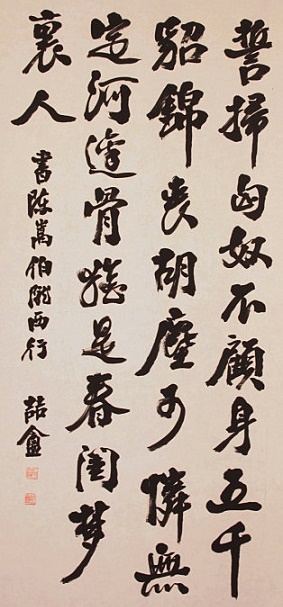 誓掃匈奴不顧身五千
貂錦喪胡塵可憐無
定河邊骨猶是春閨夢
裏人
書陳嵩伯隴西行